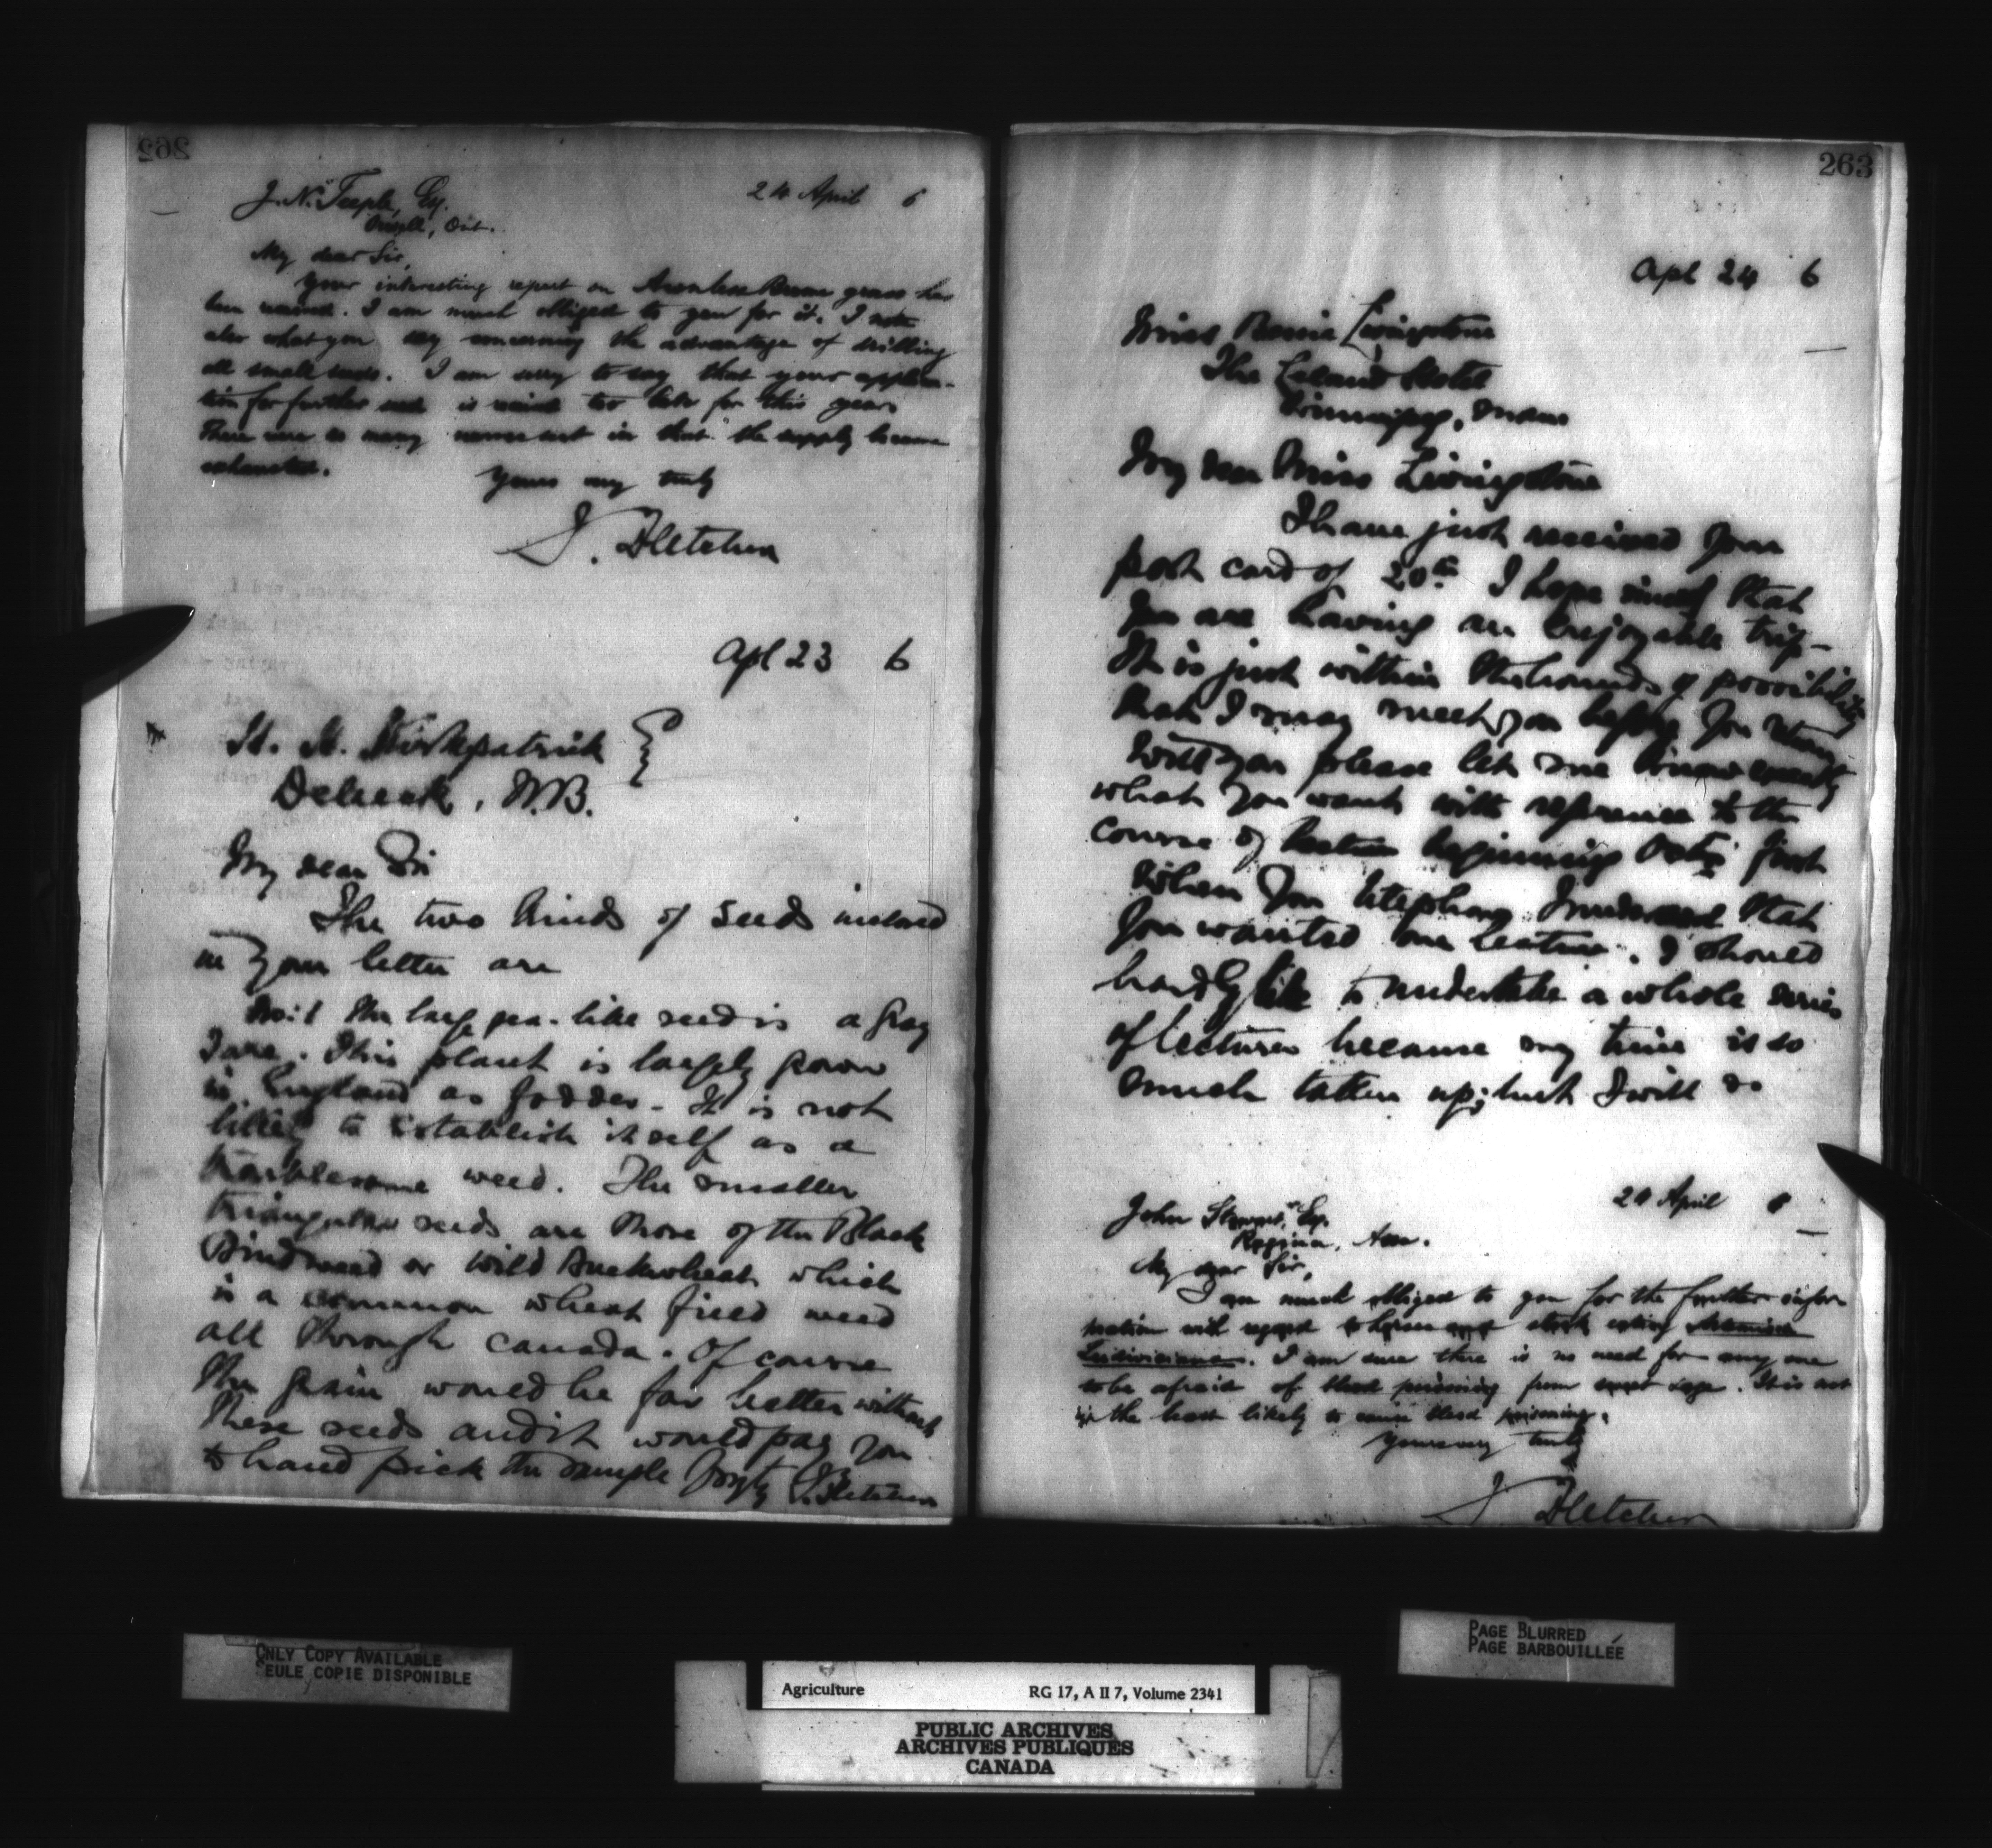 262
J. N. Teeple, Esq.
24 April 6
Ont.
My dear Sir,
Your interesting report on Awnless Brome grass has
been received. I am much obliged to you for it. I note
also what you say concerning the advantage of drilling
all small seeds. I am sorry to say that your applica-
tion for further seed is received too late for this year.
There were so many names sent in that the supply became
exhausted.
Yours very truly
J. Fletcher
Apl 23 6
H. H. Kirkpatrick
Debeck, N.B.
My dear Sir
The two kinds of seeds inclosed
in your letter are
No. 1 the large pea-like seed is a Gray
Tare. This plant is largely grown
in England as fodder - It is not
likely to establish itself as a
troublesome weed. The smaller
triangular seeds are those of the Black
Bindweed or Wild Buckwheat which
is a common wheat field weed
all through Canada. Of course
the grain would be far better without
these seeds and it would pay you
to hand pick the sample J. Fletcher
263
Apl 24 6
Miss Livingstone
The Leland Hotel
Winnipeg, Man
My dear Miss Livingstone
I have just received your
post card of 20th I hope that
you are having an enjoyable trip -
It is just within the bounds of possibility
that I may meet you before you return
Will you please let me know exactly
what you want with reference to the
course of lectures beginning Oct first
When you telephoned I understood that
you wanted one lecture. I should
hardly like to undertake a whole series
of lectures because my time is so
much taken up; but I will do
24 April 6
John Stewart, Esq.
Regina, Assa.
My dear Sir,
I am much obliged to you for the further infor
mation with regard to horses and stock eating Artemisia
Ludoviciana. I am sure there is no need for any one
to be afraid of blood poisoning from sage. It is not
in the least likely to cause blood poisoning.
Yours very truly
J. Fletcher
ONLY COPY AVAILABLE
SEULE COPIE DISPONIBLE
PAGE BLURRED
PAGE BARBOUILLÉE
Agriculture RG 17, A II 7, Volume 2341
PUBLIC ARCHIVES
ARCHIVES PUBLIQUES
CANADA